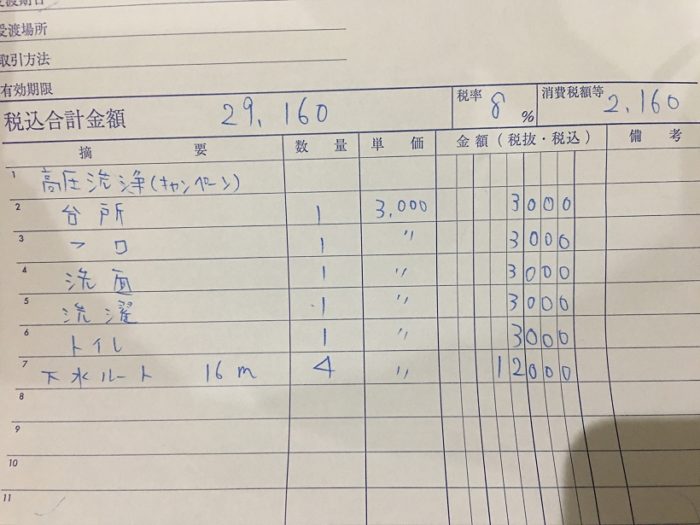 受渡期日
受渡場所
取引方法
有効期限
税込合計金額 29,160 税率 8 % 消費税額等 2,160
摘要 数量 単価 金額(税抜・税込) 備考
1 高圧洗浄(キャンペーン)
2 台所 1 3,000 3000
3 フロ 1 〃 3000
4 洗面 1 〃 3000
5 洗濯 1 〃 3000
6 トイレ 1 〃 3000
7 下水ルート 16m 4 〃 12000
8
9
10
11